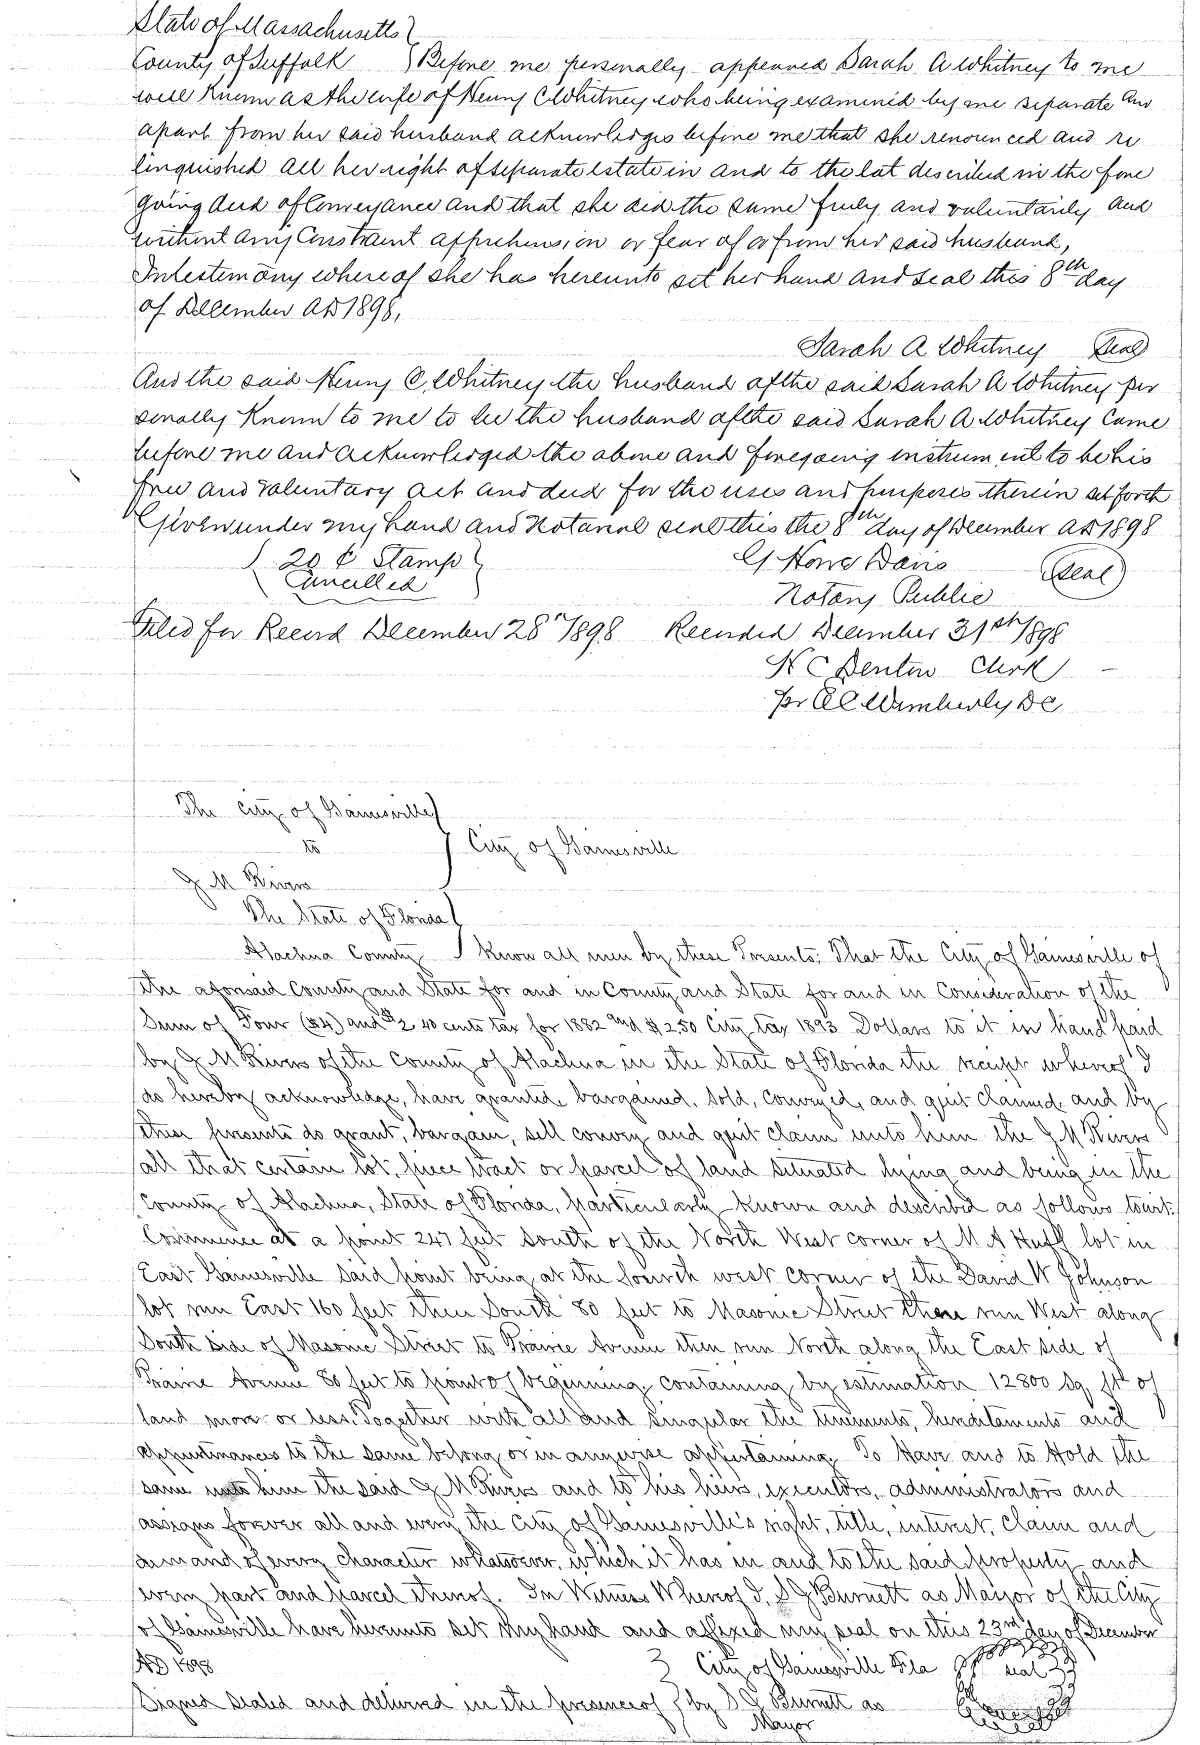 State of Massachusetts }
County of Suffolk } Before me personally appeared Sarah A Whitney to me
well Known as the wife of Henry C Whitney who being examined by me separate and
apart from her said husband acknowledges before me that she renounced and re
linquished all her right of separate estate in and to the lot described in the fore
going deed of Conveyance and that she did the same freely and voluntarily and
without any Constraint apprehension or fear of or from her said husband,
In testemony where of she has hereunto set her hand and seal this 8th day
of December AD 1898,
Sarah A Whitney (Seal)
And the said Henry C Whitney the husband of the said Sarah A Whitney per
sonally Known to me to be the husband of the said Sarah A Whitney Came
before me and acknowledged the above and foregoing instrument to be his
free and voluntary act and deed for the uses and purposes therein set forth
Given under my hand and Notarial seal this the 8th day of December AD 1898
{ 20 ¢ Stamp } G Howe Davis (Seal)
Cancelled
Notary Public
Filed for Record December 28th 1898 Recorded December 31st 1898
H C Denton Clerk
pr Wimberly DC
The City of Gainesville }
to } City of Gainesville
J M Rivers
The State of Florida }
Alachua County } Know all men by these Presents; That the City of Gainesville of
the aforesaid County and State for and in County and State for and in Consideration of the
Sum of Four ($4) and $2 40 cents tax for 1882 and $2.50 City tax 1893 Dollars to it in hand paid
by J M Rivers of the County of Alachua in the State of Florida the receipt whereof I
do hereby acknowledge, have granted, bargained, sold, conveyed, and quit claimed, and by
these presents do grant, bargain, sell convey and quit claim unto him the J M Rivers
all that certain lot, piece tract or parcel of land situated lying and being in the
County of Alachua, State of Florida, particularly known and described as follows towit:
Commence at a point 247 feet South of the North West corner of M A Huff lot in
East Gainesville said point being at the South west corner of the David W Johnson
lot run East 160 feet then South 80 feet to Masonic Street then run West along
South side of Masonic Street to Prairie Avenue then run North along the East side of
Prairie Avenue 80 feet to point of beginning containing by estimation 12800 Sq ft of
land more or less. Together with all and singular the tenements, hereditaments and
appurtenances to the same belong or in anywise appertaining. To Have and to Hold the
same unto him the said J M Rivers and to his heirs, executors, administrators and
assigns forever all and every the City of Gainesville's right, title, interest, claim and
demand of every character whatsoever, which it has in and to the said property and
every part and parcel thereof. In Witness Whereof I, S J Burnett as Mayor of the City
of Gainesville have hereunto set my hand and affixed my seal on this 23rd day of December
AD 1898 } City of Gainesville Fla seal
Signed sealed and delivered in the presence of } by S J Burnett as
Mayor